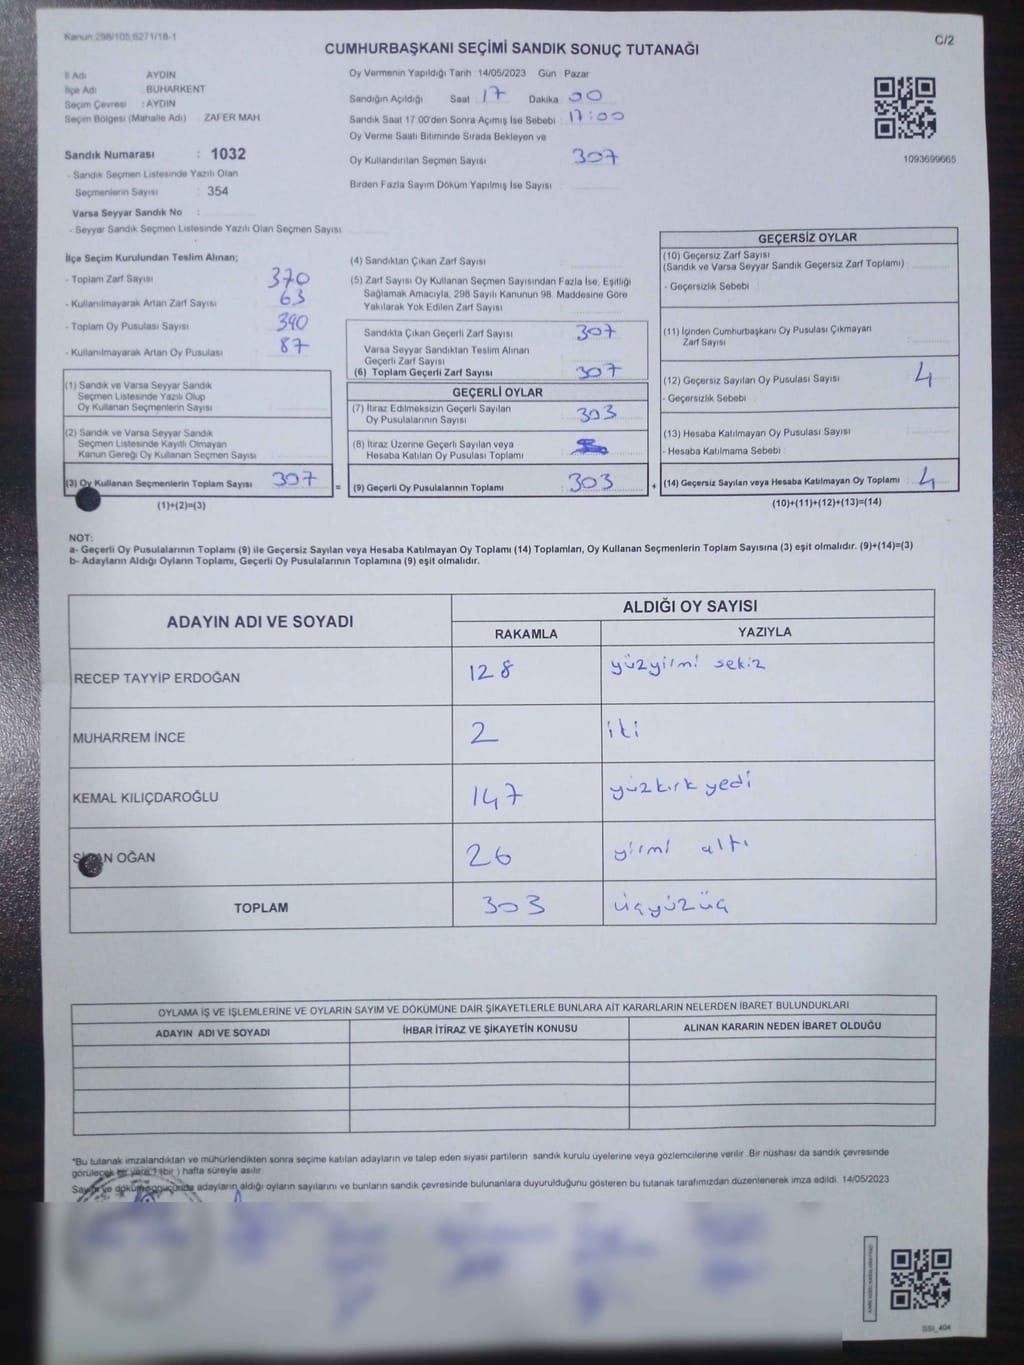 Kanun 298/105 6271/18-1
C/2
CUMHURBAŞKANI SEÇİMİ SANDIK SONUÇ TUTANAĞI
İl Adı AYDIN
İlçe Adı BUHARKENT
Seçim Çevresi : AYDIN
Seçim Bölgesi (Mahalle Adı) : ZAFER MAH.
Sandık Numarası : 1032
- Sandık Seçmen Listesinde Yazılı Olan
Seçmenlerin Sayısı : 354
Varsa Seyyar Sandık No :
- Seyyar Sandık Seçmen Listesinde Yazılı Olan Seçmen Sayısı
Oy Vermenin Yapıldığı Tarih : 14/05/2023 Gün : Pazar
Sandığın Açıldığı Saat 17 Dakika 00
Sandık Saat 17:00'den Sonra Açımış İse Sebebi 17:00
Oy Verme Saati Bitiminde Sırada Bekleyen ve
Oy Kullandırılan Seçmen Sayısı 307
Birden Fazla Sayım Döküm Yapılmış İse Sayısı
1093699665
İlçe Seçim Kurulundan Teslim Alınan;
- Toplam Zarf Sayısı 370
- Kullanılmayarak Artan Zarf Sayısı 63
- Toplam Oy Pusulası Sayısı 390
- Kullanılmayarak Artan Oy Pusulası 87
(1) Sandık ve Varsa Seyyar Sandık
Seçmen Listesinde Yazılı Olup
Oy Kullanan Seçmenlerin Sayısı
(2) Sandık ve Varsa Seyyar Sandık
Seçmen Listesinde Kayıtlı Olmayan
Kanun Gereği Oy Kullanan Seçmen Sayısı
(3) Oy Kullanan Seçmenlerin Toplam Sayısı 307
=
(1)+(2)=(3)
(4) Sandıktan Çıkan Zarf Sayısı
(5) Zarf Sayısı Oy Kullanan Seçmen Sayısından Fazla İse, Eşitliği
Sağlamak Amacıyla, 298 Sayılı Kanunun 98. Maddesine Göre
Yakılarak Yok Edilen Zarf Sayısı
Sandıkta Çıkan Geçerli Zarf Sayısı 307
Varsa Seyyar Sandıktan Teslim Alınan
Geçerli Zarf Sayısı
(6) Toplam Geçerli Zarf Sayısı 307
GEÇERLİ OYLAR
(7) İtiraz Edilmeksizin Geçerli Sayılan
Oy Pusulalarının Sayısı 303
(8) İtiraz Üzerine Geçerli Sayılan veya
Hesaba Katılan Oy Pusulası Toplamı
(9) Geçerli Oy Pusulalarının Toplamı 303
+
GEÇERSİZ OYLAR
(10) Geçersiz Zarf Sayısı
(Sandık ve Varsa Seyyar Sandık Geçersiz Zarf Toplamı)
- Geçersizlik Sebebi
(11) İçinden Cumhurbaşkanı Oy Pusulası Çıkmayan
Zarf Sayısı
(12) Geçersiz Sayılan Oy Pusulası Sayısı 4
- Geçersizlik Sebebi
(13) Hesaba Katılmayan Oy Pusulası Sayısı
- Hesaba Katılmama Sebebi
(14) Geçersiz Sayılan veya Hesaba Katılmayan Oy Toplamı 4
(10)+(11)+(12)+(13)=(14)
NOT:
a- Geçerli Oy Pusulalarının Toplamı (9) ile Geçersiz Sayılan veya Hesaba Katılmayan Oy Toplamı (14) Toplamları, Oy Kullanan Seçmenlerin Toplam Sayısına (3) eşit olmalıdır. (9)+(14)=(3)
b- Adayların Aldığı Oyların Toplamı, Geçerli Oy Pusulalarının Toplamına (9) eşit olmalıdır.
ADAYIN ADI VE SOYADI ALDIĞI OY SAYISI
RAKAMLA YAZIYLA
RECEP TAYYİP ERDOĞAN 128 yüzyilmi sekiz
MUHARREM İNCE 2 iki
KEMAL KILIÇDAROĞLU 147 yüzkırk yedi
OĞAN 26 yirmi altı
TOPLAM 303 üçyüzüç
OYLAMA İŞ VE İŞLEMLERİNE VE OYLARIN SAYIM VE DÖKÜMÜNE DAİR ŞİKAYETLERLE BUNLARA AİT KARARLARIN NELERDEN İBARET BULUNDUKLARI
ADAYIN ADI VE SOYADI İHBAR İTİRAZ VE ŞİKAYETİN KONUSU ALINAN KARARIN NEDEN İBARET OLDUĞU
*Bu tutanak imzalandıktan ve mühürlendikten sonra seçime katılan adayların ve talep eden siyasi partilerin sandık kurulu üyelerine veya gözlemcilerine verilir. Bir nüshası da sandık çevresinde
görülecek bir yere 1 (bir) hafta süreyle asılır.
Sayım ve döküm sonucunda adayların aldığı oyların sayılarını ve bunların sandık çevresinde bulunanlara duyurulduğunu gösteren bu tutanak tarafımızdan düzenlenerek imza edildi. 14/05/2023
SSI_404